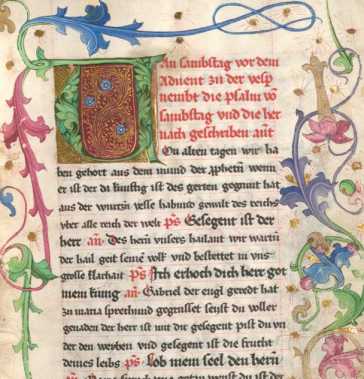 An sambstag vor dem
Aduent zu der vesp
nembt die psalm vō
sambstag vnd die her
nach geschriben ant
On alten tagen wir ha
ben gehort aus dem mund der ꝓheten wenn
er ist der da kunftig ist des gerten gegnut hat
aus der wurczn yesse habund gewalt des reichs
vber alle reich der welt ps Gesegent ist der
herr an Des hern vnsers hailant wir wartn
der hail geit seinē volk vnd bestettet in vns
grosse klarhait ps Ich erhoch dich herr got
mein kunig an Gabriel der engl geredt hat
zu maria sprechund gegrusset seist du voller
genaden der herr ist mit dir gesegent pist du vn
der den weyben vnd gesegent ist die frucht
deines leibs ps Lob mein seel den hern